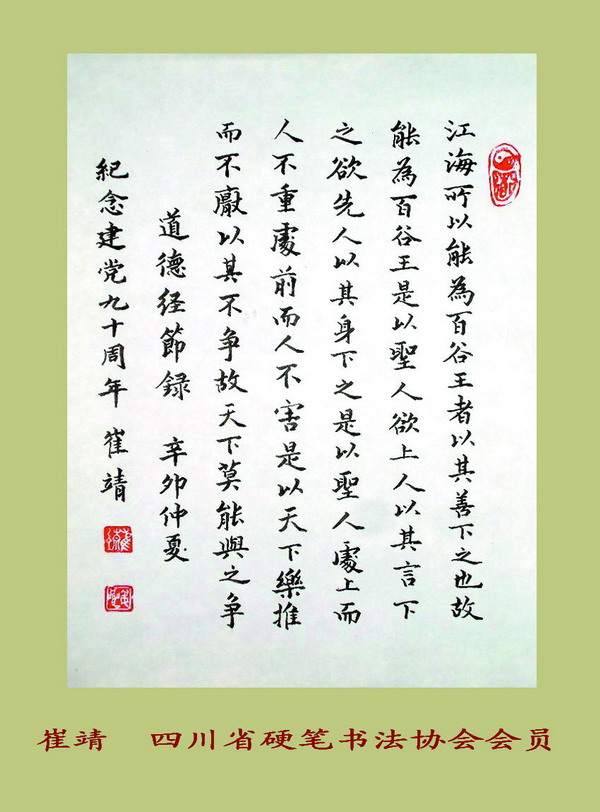 江海所以能為百谷王者以其善下之也故
能為百谷王是以聖人欲上人以其言下
之欲先人以其身下之是以聖人處上而
人不重處前而人不害是以天下樂推
而不厭以其不争故天下莫能與之争
道德经節録 辛卯仲夏
紀念建党九十周年 崔靖
崔靖 四川省硬笔书法协会会员